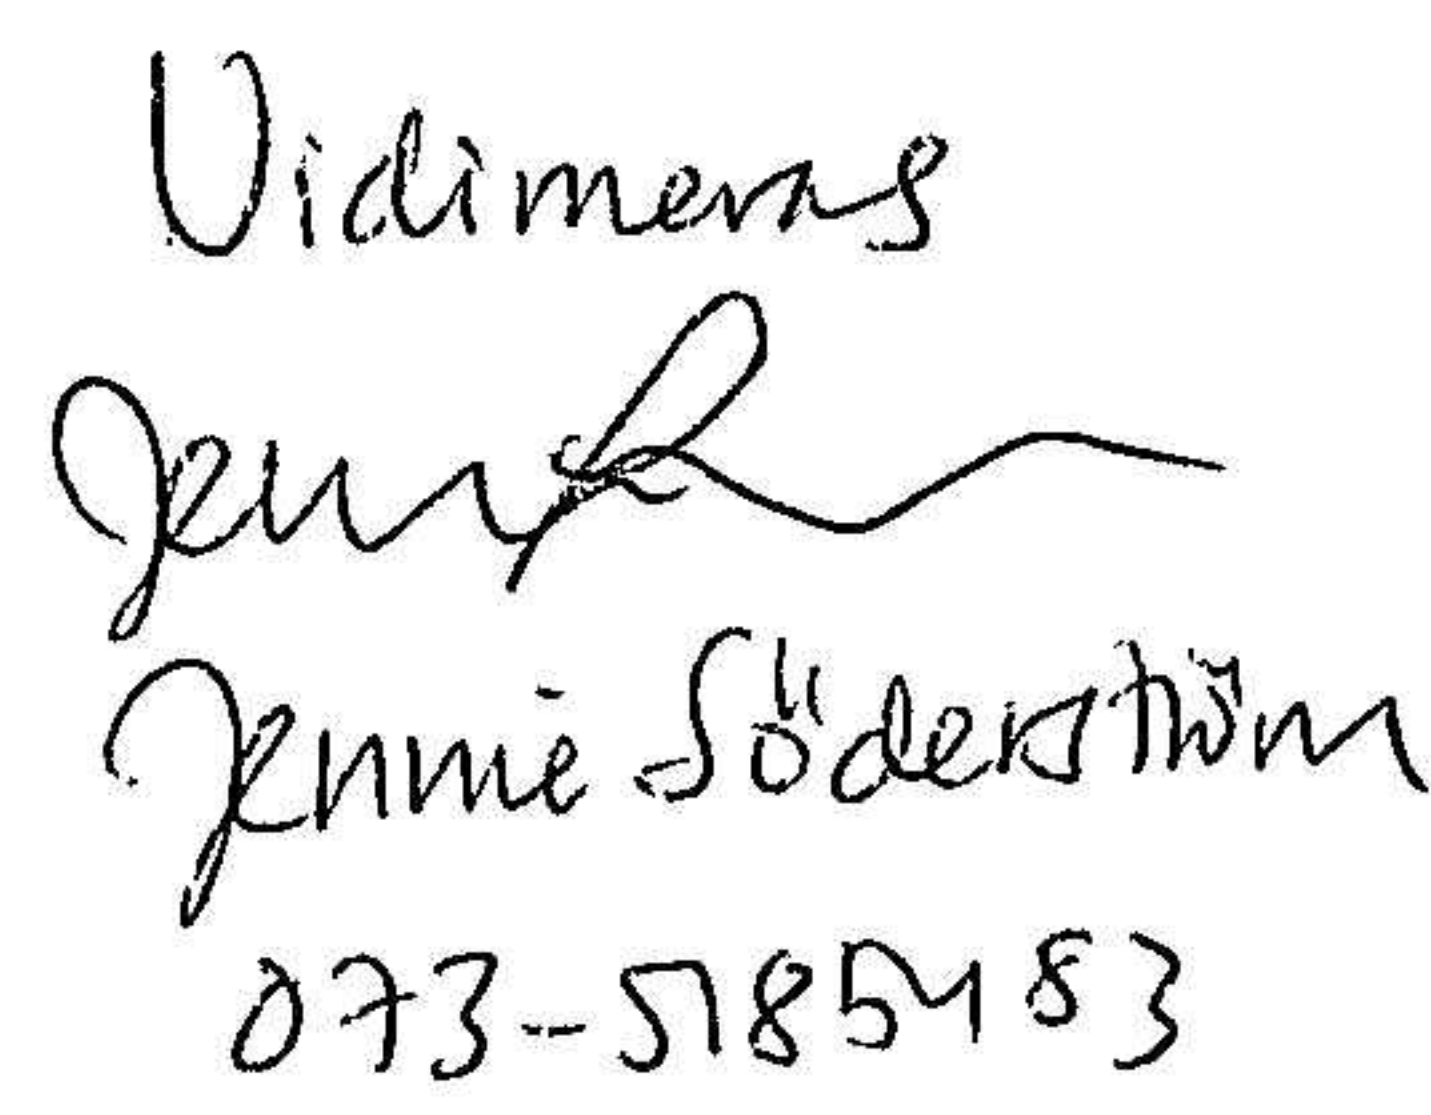 Vidimeras
Jennie Söderström
073-5185483